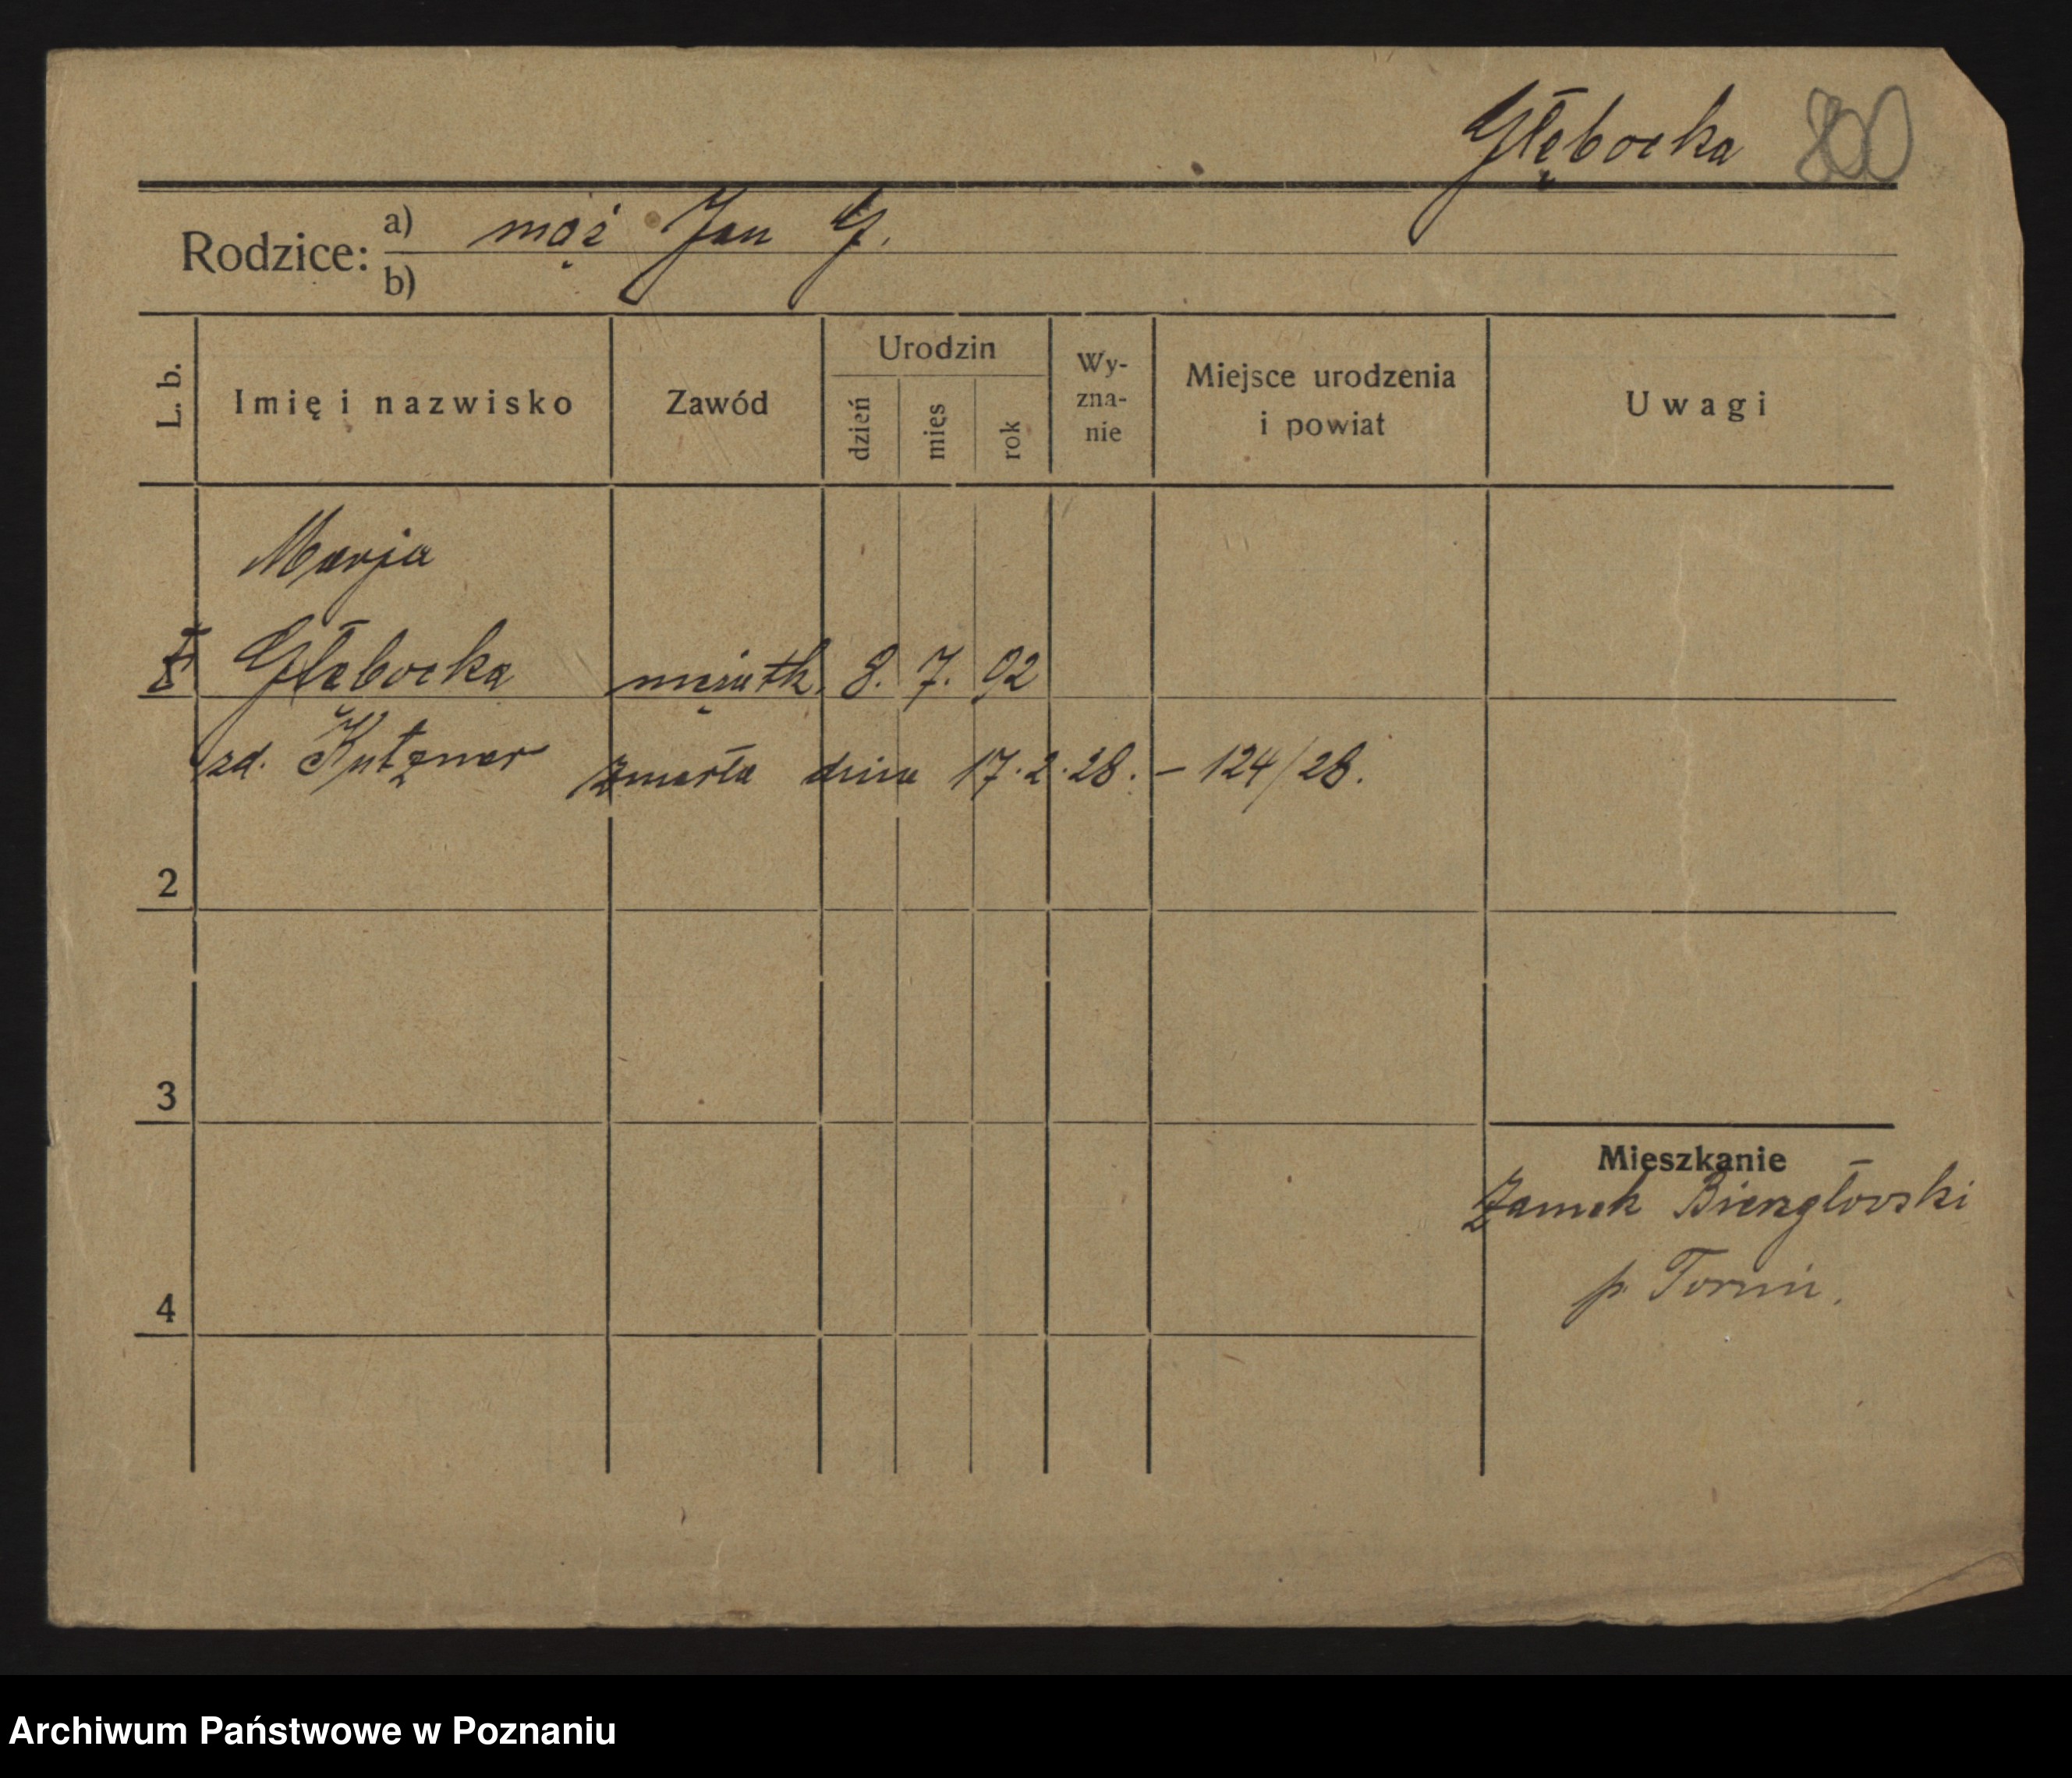 Głębocka 800
Rodzice: a) mąż Jan G.
b)
L. b.
Imię i nazwisko
Zawód
Urodzin
dzień
mies
rok
Wy-
zna-
nie
Miejsce urodzenia
i powiat
Uwagi
Marja
Głębocka 8. 7. 92
zd. Kutzner zmarła dnia 17.2.28. – 124/28.
2
3
4
Mieszkanie
Zamek Bierzgłowski
p. Toruń.
Archiwum Państwowe w Poznaniu